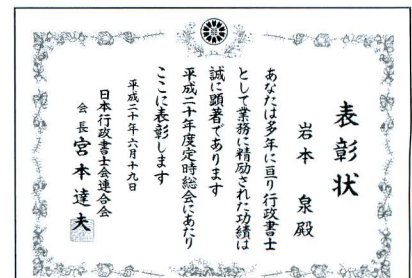 表彰状
岩本 泉殿
あなたは多年に亘り行政書士
として業務に精励された功績は
誠に顕著であります
平成二十年度定時総会にあたり
ここに表彰します
平成二十年六月十九日
日本行政書士会連合会
会長 宮本達夫